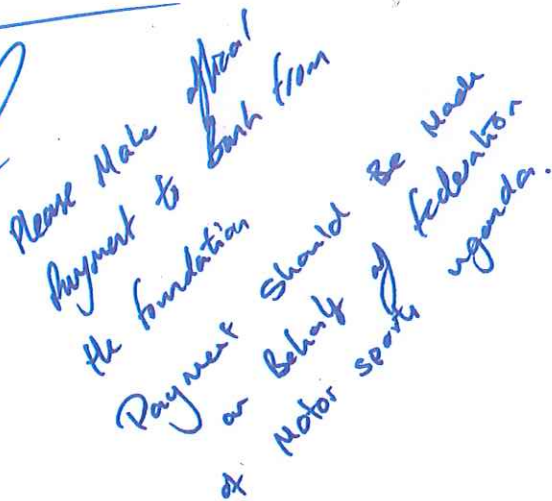 Please Make offical
Payment to Bank from
the foundation
Payment Should Be Made
on Behalf of federation
of Motor sports uganda.